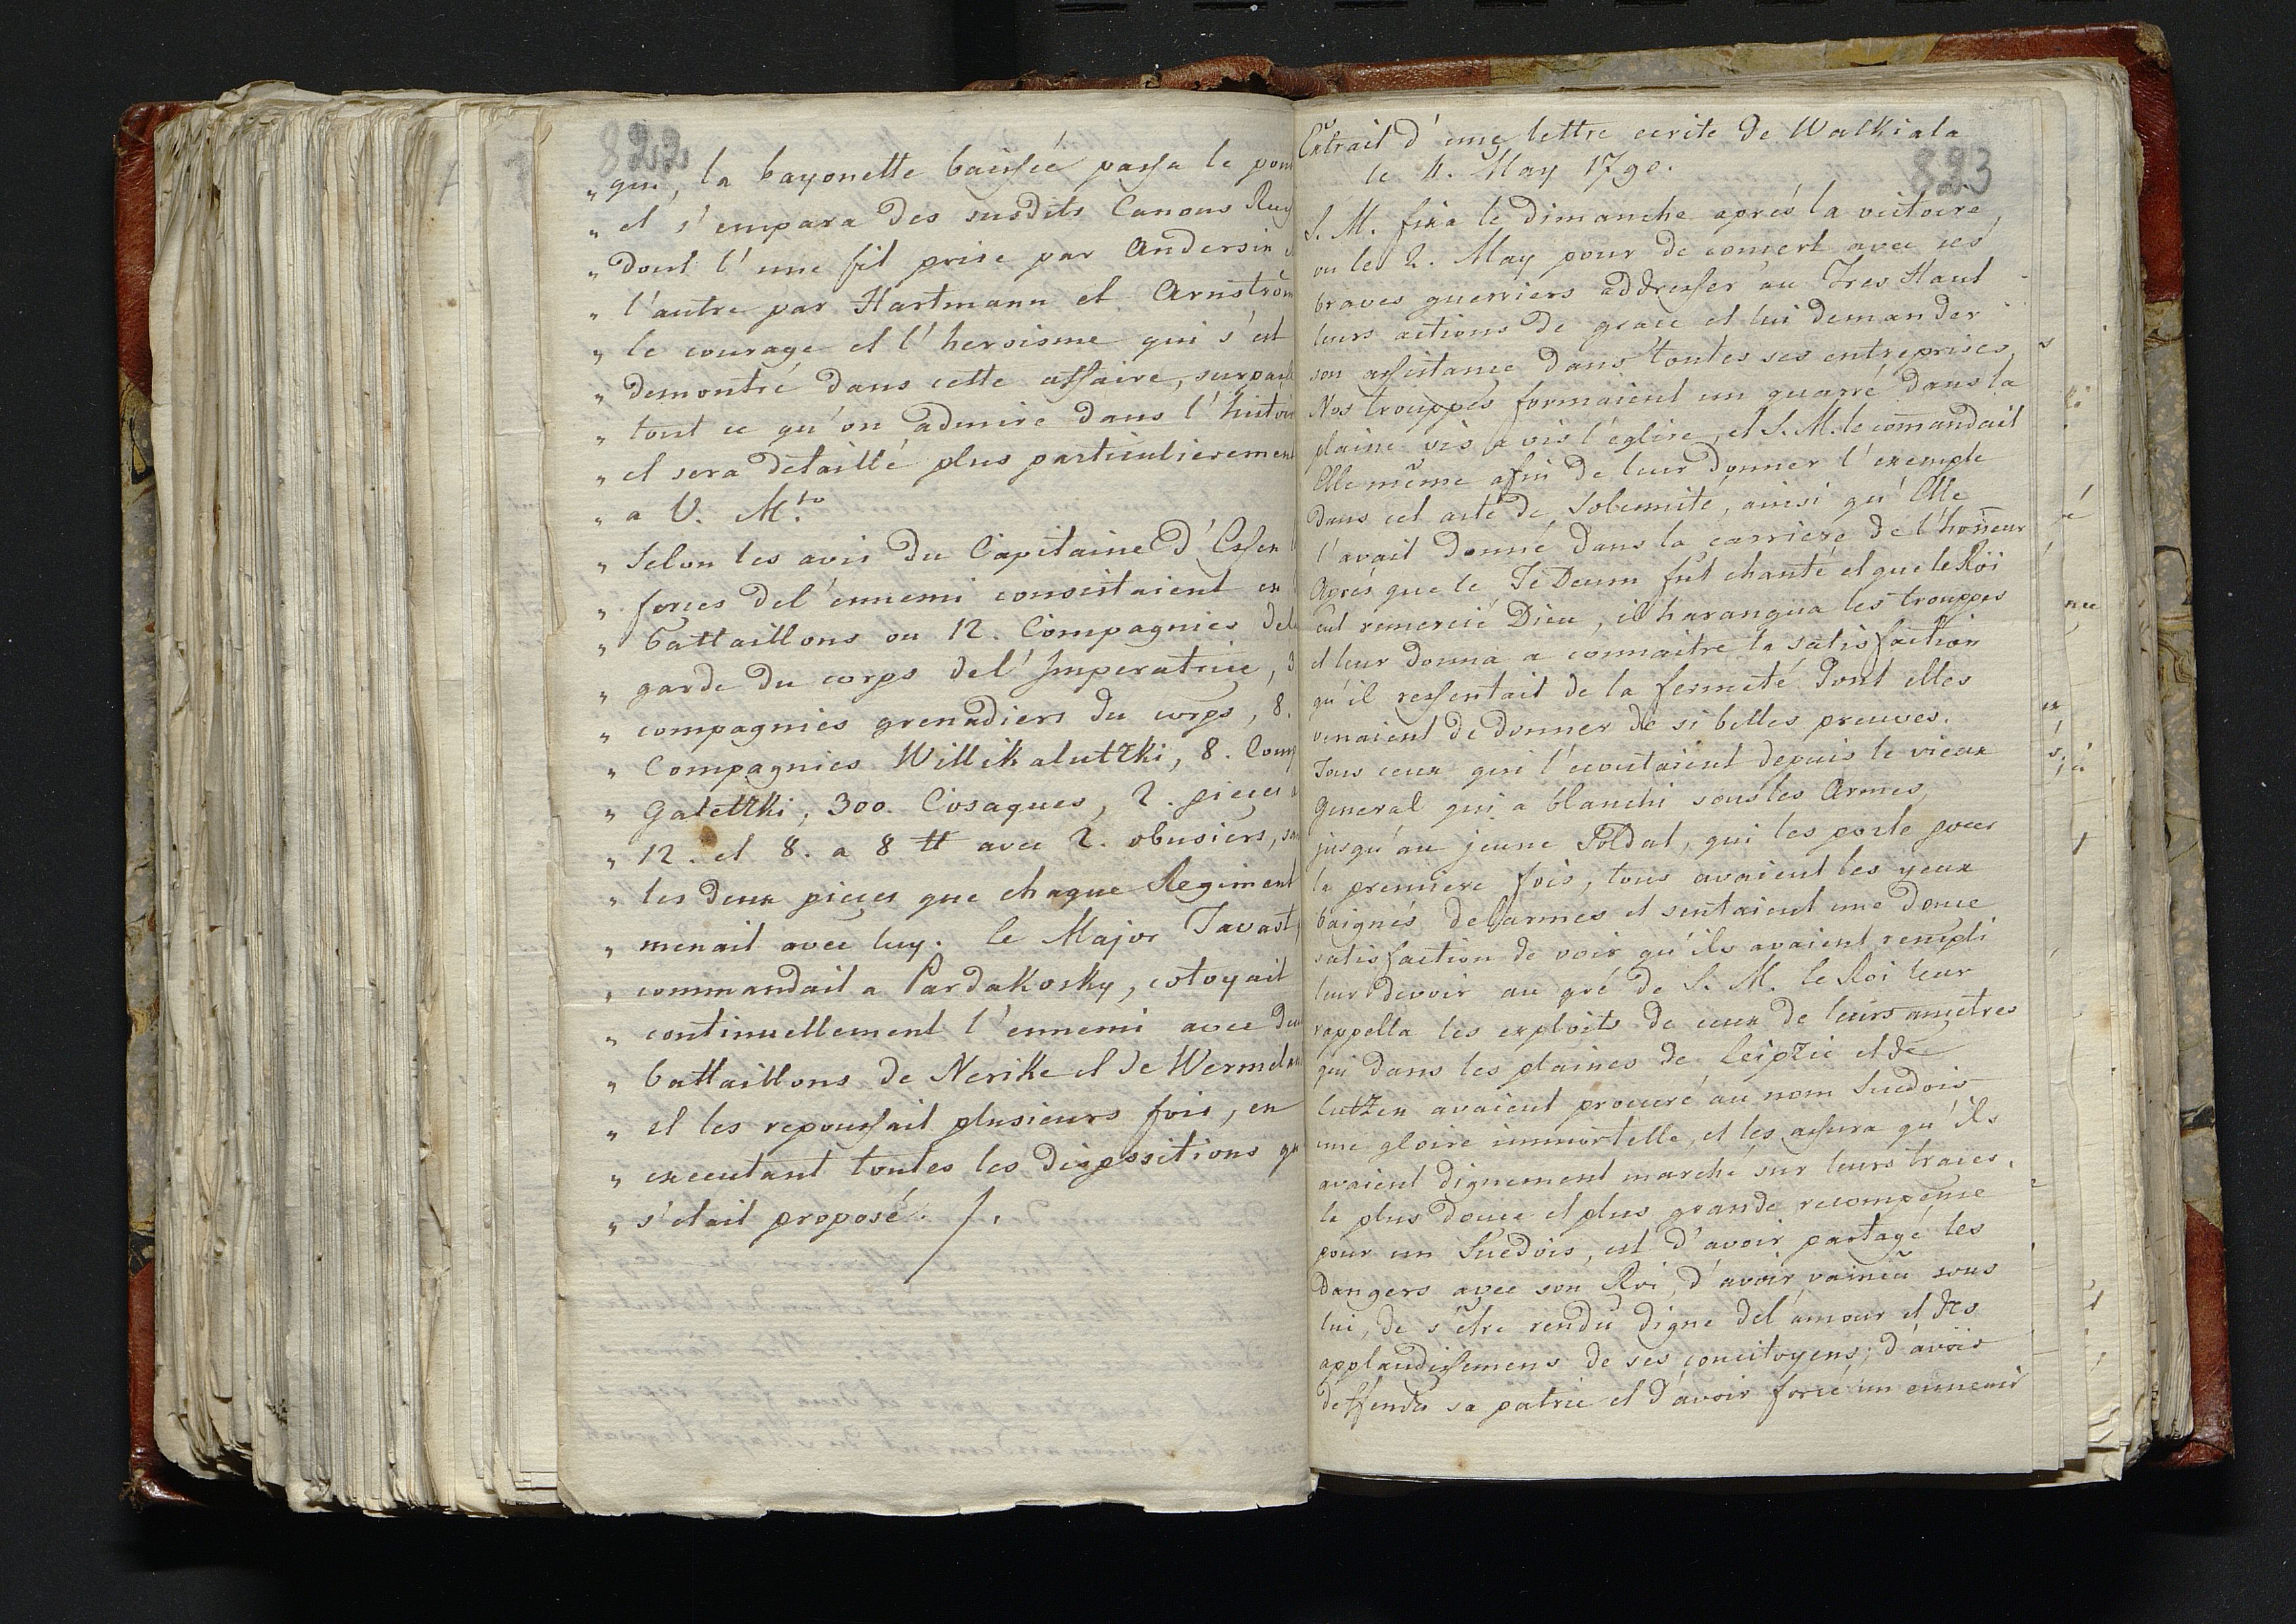 822
„ qui, la bayonette baissée passa le pont
„ et s'empara des susdits Canons
„ dont l'une fut prise par Andersin
„ l'autre par Hartmann et Arnström
„ le courage et l'heroisme qui s'est
„ demontré dans cette affaire,
„ tout ce qu'on admire dans l'histoire
„ et sera detaillé plus particulièrement
„ a V. M.té
„ Selon les avis du Capitaine d'Essen
„ forces de l'ennemi consistaient en
„ battaillons ou 12. Compagnies de
„ garde du corps de l'Imperatrice, 3
„ compagnies grenadiers du corps, 8.
„ Compagnies Willikalutzki, 8. Comp
„ Galetzki, 300. Cosaques, 2. pieces
„ 12. et 8. a 8 ℔ avec 2. obusiers,
„ les deux pieces que chaque Regiment
„ menait avec luy. le Major Tavast,
„ commandait a Pardakosky, cotoyait
„ continuellement l'ennemi avec
„ battaillons de Nerike et de Wermeland
„ et les repoussait plusieurs fois, en
„ executant toutes les dispositions
„ s'etait proposé. /.
Extrait d'une lettre ecrite de Walkiala
le 4. May 1790.
823
S. M. fixa le dimanche aprés la victoire,
ou le 2. May pour de concert avec ses
braves guerriers addresser au Tres Haut
leurs actions de grace et lui demander
son assistance dans toutes ses entreprises,
Nos trouppes formaient un quarré dans la
plaine vis a vis l'eglise, et S. M. le comandait
Elle même afin de leur donner l'exemple
dans cet acte de Solennité, ainsi qu'Elle
l'avait donné dans la carriere de l'honneur
Aprés que le Te Deum fut chanté et que le Roi
eut remercié Dieu, il harangua les trouppes
et leur donna a connaitre la satisfaction
qu'il ressentait de la fermeté dont elles
venaient de donner de si belles preuves.
Tous ceux qui l'ecoutaient depuis le vieux
General qui a blanchi sous les Armes,
jusqu'au jeune Soldat, qui les porte pour
la premiere fois, tous avaient les yeux
baignés de larmes et sentaient une douce
satisfaction de voir qu'ils avaient rempli
leur devoir au gré de S. M. le Roi leur
rappella les exploits de ceux de leurs ancetres
qui dans les plaines de Leipzic et de
Lutzen avaient procuré au nom Suedois
une gloire immortelle, et les assura qu'ils
avaient dignement marché sur leurs traces.
la plus douce et plus grande recompense
pour un Suedois, est d'avoir partagé les
dangers avec son Roi, d'avoir vaincu sous
lui, de s'étre rendu digne de l'amour et des
applaudissemens de ses concitoyens; d'avoir
deffendu sa patrie et d'avoir forcé un ennemi